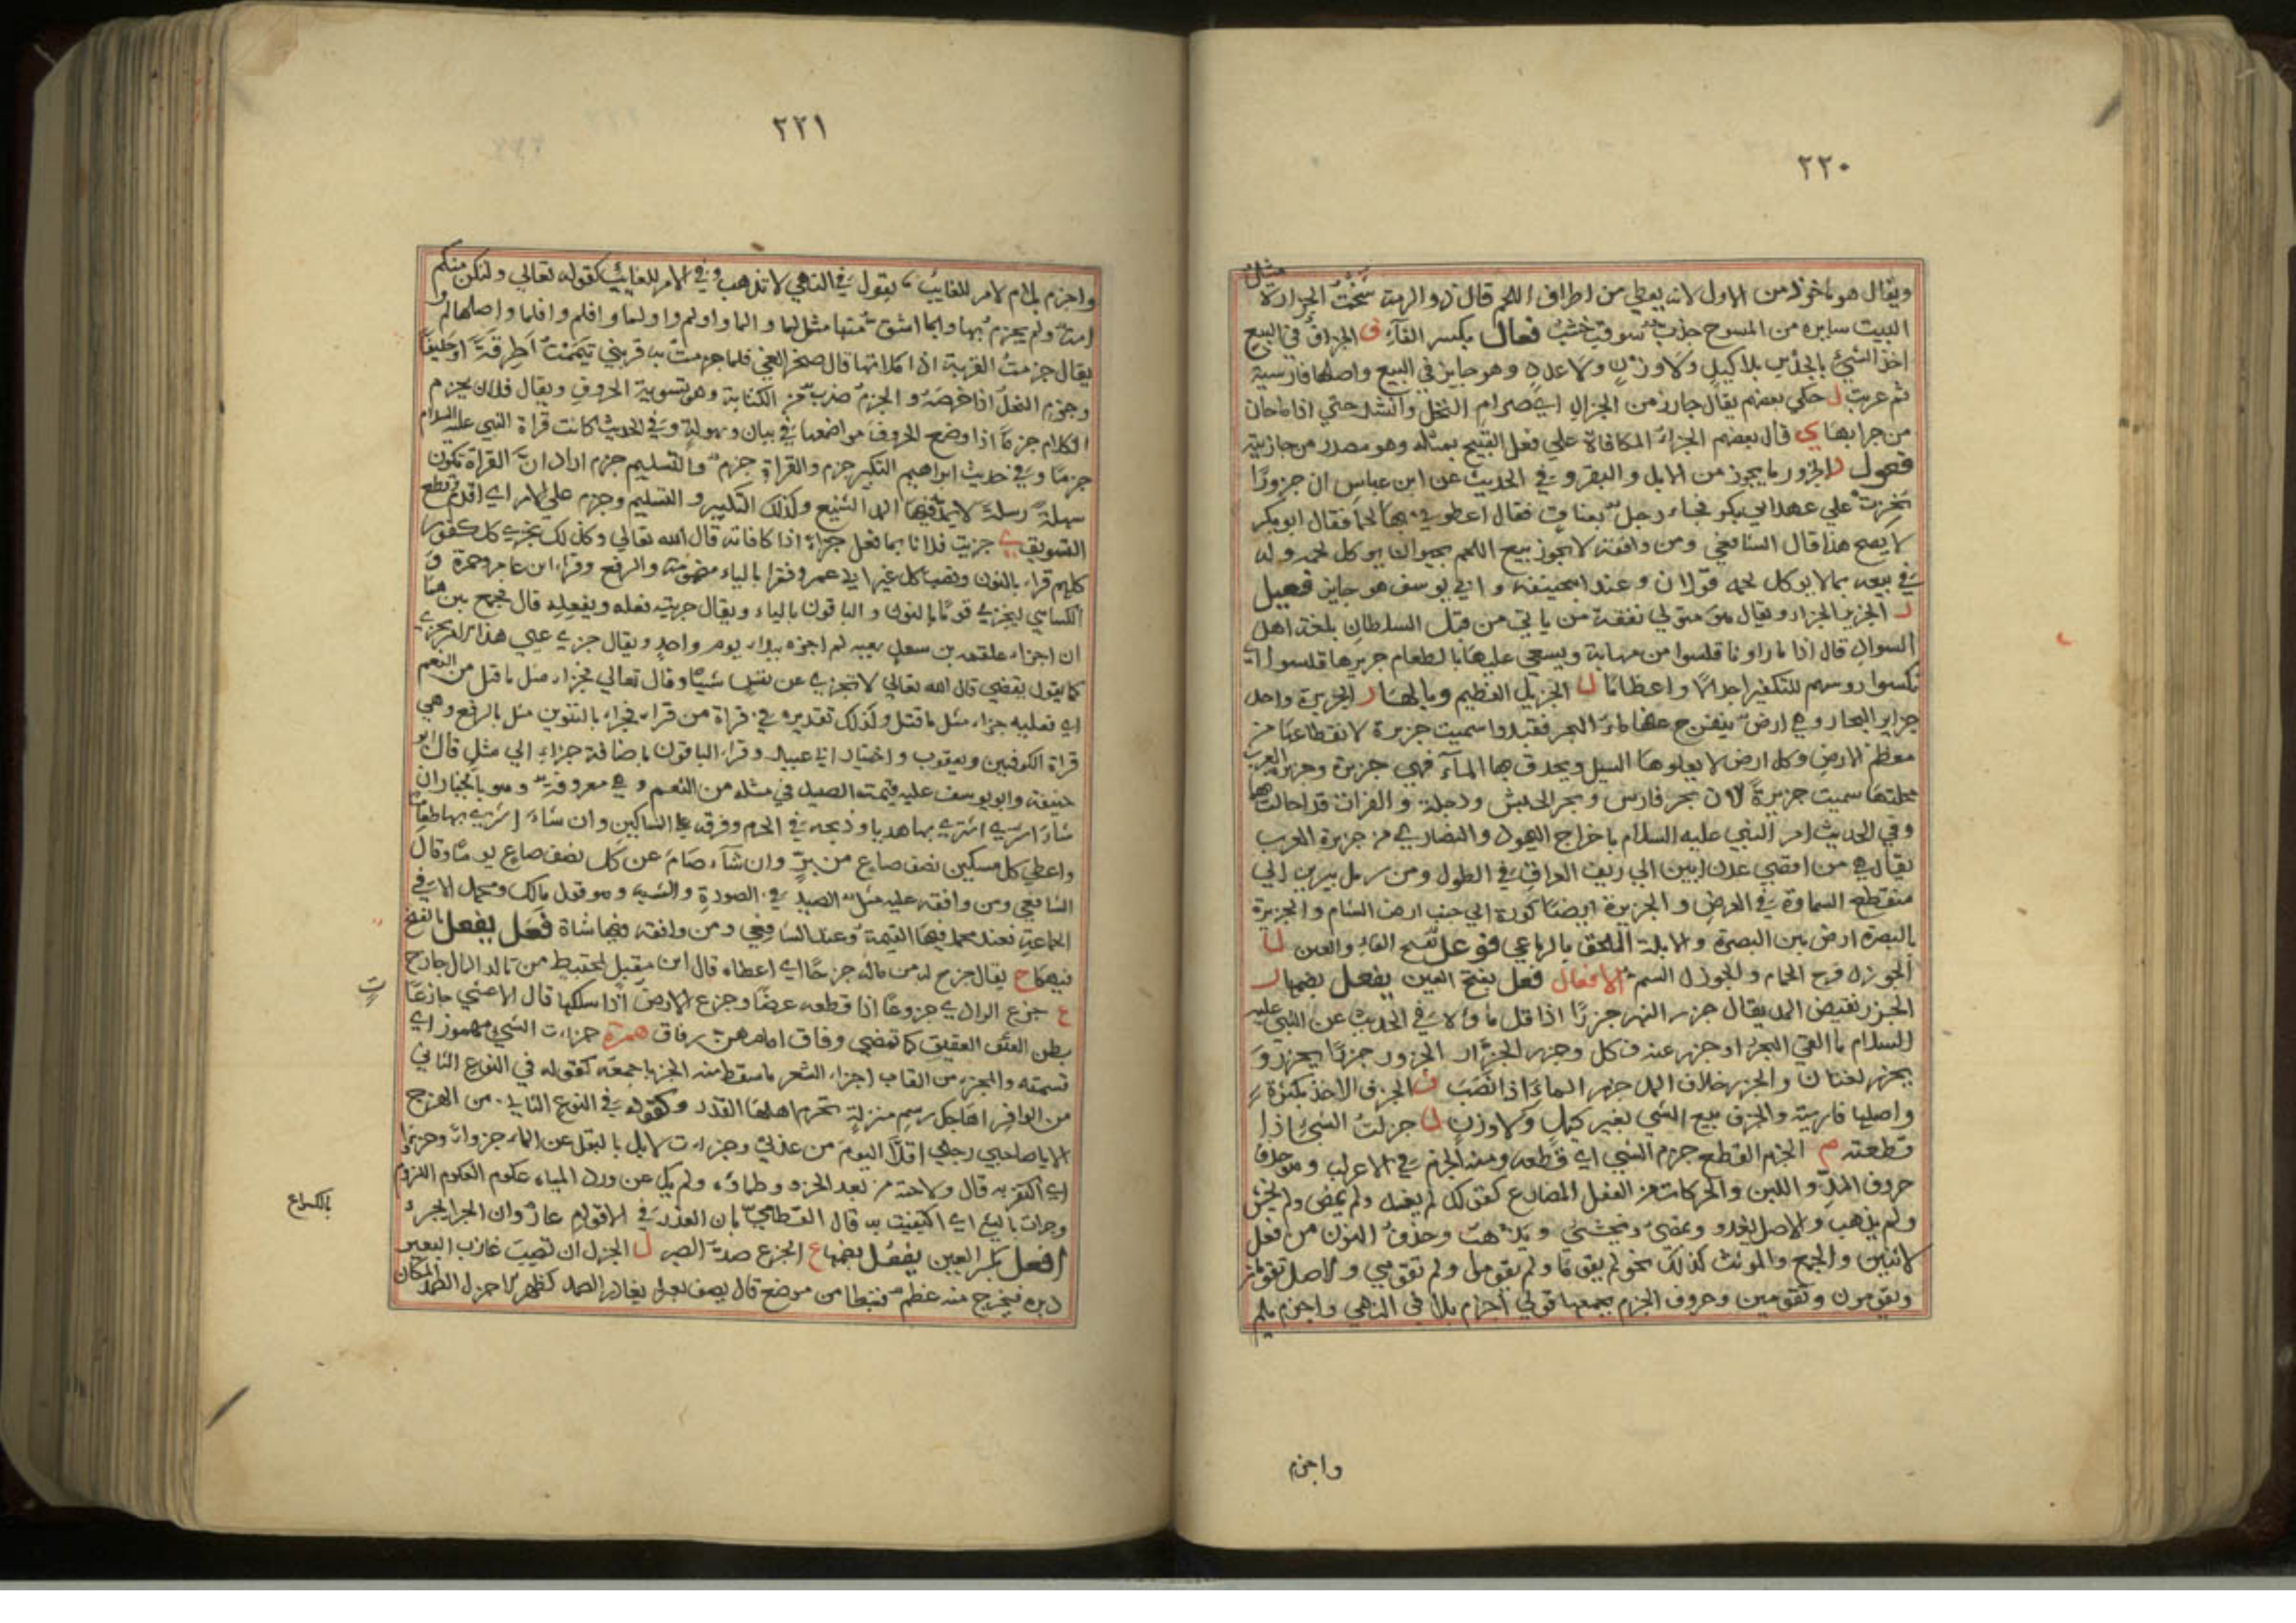 ٢٢٠
ويقال هو ماخوذ من الاول لانه يعطي من اطراف اللحم قال ذو الرمة شخت الجزارة مثل
البيت سايره من المسوح خدب شوقب خشب فعال بكسر الفاء ف الجزاف في البيع
اخذ الشيء بالحدس بلا كيل ولا وزن ولا عدد وهو جايز في البيع واصلها فارسية
ثم عربت ل حكي بعضهم يقال جا زمن الجزال اي صرام النخل وانشد حتي اذا ما حان
من جرابها ي قال بعضهم الجزاء المكافاة علي فعل القبيح بمثله وهو مصدر من جازيته
فعول ر الجزور ما يجوز من الابل والبقر وفي الحديث عن ابن عباس ان جزورا
نحرت علي عهد ابي بكر فجاء رجل بعناق فقال اعطوني بها لحما فقال ابو بكر
لا يصح هذا قال الشافعي ومن وافقه لا يجوز بيع اللحم بحيوان يوكل لحمه وله
في بيعه بما لا يوكل لحمه قولان وعند ابي حنيفة وابي يوسف هو جايز فعيل
ر الجزير الجزار ويقال هو متولي نفقة من ياتي من قبل السلطان بلغة اهل
السواد قال اذا ما راونا قلسوا من مهابة ويسعي علينا بالطعام جزيرها قلسوا اي
نكسوا روسهم للتكفير اجلالا واعظاما ل الجزيل العظيم وبالهاء ر الجزيرة واحدة
جزاير البحار وهي ارض ينفرج عنها ماء البحر فتبدوا سميت جزيرة لانقطاعها من
معظم الارض وكل ارض لا يعلوها السيل ويحدق بها الماء فهي جزيرة وجزيرة العرب
محلتها سميت جزيرة لان بحر فارس وبحر الحبش ودجلة والفرات قد احاطت بها
وفي الحديث امر النبي عليه السلام باخراج اليهود والنصاري من جزيرة العرب
يقال هي من اقصي عدن ابين الي ريف العراق في الطول ومن رمل يبرين الي
منقطع السماوة في العرض والجزيرة ايضا كورة الي جنب ارض الشام والجزيرة
بالبصرة ارض بين البصرة والابلة الملحق بالرباعي فوعل بفتح الفاء والعين ل
الجوزل فرخ الحمام والجوزل السم الافعال فعل بفتح العين يفعل بضمها ر
الجزر نقيض المد يقال جزر النهر جزرا اذا قل ماوه وفي الحديث عن النبي عليه
السلام ما القي البحر او جزر عنه فكل وجزر الجزار الجزور جزرا يجزر و
يجزر لغتان والجزر خلاف المد جزر الماء اذا نضب ف الجزف الاخذ بكثرة
واصلها فارسية والجزف بيع الشي بغير كيل ولا وزن ل جزلت الشيء اذا
قطعته م الجزم القطع جزم الشي اي قطعه ومنه الجزم في الاعراب وهو حذف
حروف المد واللين والحركات من الفعل المضارع كقولك لم يغد ولم يمض ولم يخش
ولم يذهب والاصل يغدو ويمضي ويخشي ويذهب وحذف النون من فعل
الاثنين والجمع والمونث كذلك نحو لم يقوما ولم يقوموا ولم تقومي والاصل تقومان
ويقومون وتقومين وحروف الجزم يجمعها قولي اجزم بلا في النهي واجزم بلم
واجزم
٢٢١
واجزم بلام الامر للغايب يقول في النهي لا تذهب وفي الامر للغايب كقوله تعالي ولتكن منكم
امة ولم يجزم بها وبما اشتق منها مثل لما والما واولم واولما وافلم وافلما واصلها لم
يقال جزمت القربة اذا ملاتها قال صخر الغي فلما جزمت به قربتي تيممت اطرقة او خليفا
وجزم النخل اذا خرصه والجزم ضرب من الكتابة وهو تسوية الحروف ويقال فلان يجزم
الكلام جزما اذا وضع الحروف مواضعها في بيان وسهولة وفي الحديث كانت قراة النبي عليه السلام
جزما وفي حديث ابراهيم التكبير جزم والقراة جزم والتسليم جزم اراد ان القراة تكون
سهلة رسلة لا يمد فيها المد الشنيع وكذلك التكبير والتسليم وجزم علي الامر اي اقدم وقطع
التسويف ي جزيت فلانا بما فعل جزاء اذا كافاته قال الله تعالي وكذلك نجزي كل كفور
كلهم قراء بالنون ونصب كل غير ابي عمرو فقرا بالياء مضمومة والرفع وقراء ابن عامر وحمزة و
الكسائي ليجزي قوما بالنون والباقون بالياء ويقال جزيته نعله وبفعله قال فجمع بين هما
ان اجزاء علقمة بن سعد سعيه لم اجزه ببلاء يوم واحد ويقال جزي عني هذا الامر يجزي
كما يقول يقضي قال الله تعالي لا تجزي عن نفس شيئا وقال تعالي فجزاء مثل ما قتل من النعم
اي فعليه جزاء مثل ما قتل ولذلك تقديره في قراة من قراء فجزاء بالتنوين مثل بالرفع وهي
قراة الكوفيين ويعقوب واختيار ابي عبيد وقراء الباقون باضافة جزاء الي مثل قال ابو
حنيفة وابو يوسف عليه قيمة الصيد في مثله من النعم وهي معروفة وهو بالخيار ان
شاء اشتري بها هديا وذبحه في الحرم وفرقه علي المساكين وان شاء اشتري بها طعاما
واعطي كل مسكين نصف صاع من بر وان شاء صام عن كل نصف صاع يوما وقال
الشافعي ومن وافقه عليه مثل الصيد في الصورة والشبه وهو قول مالك ومحمد الا في
الحمامة فعند محمد فيها القيمة وعند الشافعي ومن وافقه فيها شاة فعل يفعل بالفتح
فيهما ح يقال جزح له من ماله جزحا اي اعطاه قال ابن مقبل لمختبط من تالد المال جازح
ع جزع الوادي جزوعا اذا قطعه عرضا وجزع الارض اذا سلكها قال الاعشي جازعات
بطن العقيق كما تمضي رفاق امامهن رفاق همزة جزات الشيء مهموز اي
قسمته والمجزو من القاب اجزاء الشعر ما سقط منه الجزء باجمعه كقوله في النوع الثاني
من الوافر اهاجك رسم منزلة تحرم اهلها القدر وكقوله في النوع الثاني من الهزج
الا يا صاحبي رحلي اقلا اليوم من عذلي وجزات الابل بالبقل عن الماء جزوا وجزءا
اي اكتفت به قال ولاحته من بعد الجزو ظماة ولم يكن عن ورد المياه عكوم العكوم اللزوم
وجزات بالشيء اي اكتفيت به قال القطامي بان الغدر في الاقوام عار وان الحر يجزء
بالكراع
فعل بكسر العين يفعل بفتحها ع الجزع ضد الصبر ل الجزل ان تصيب غارب البعير
دبرة فيخرج منه عظم فتبطا من موضع قال يصف بعيرا يغادر الصمد كظهر الاجزل الصمد المكان